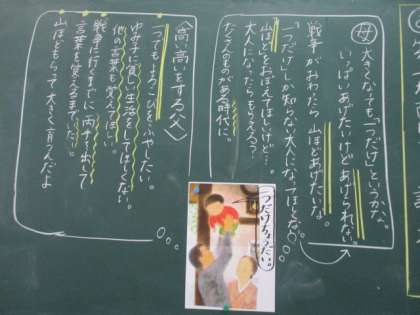 母
大きくなっても「一つだけ」というかな。
いっぱいあげたいけどあげられない。
戦争がおわったら 山ほどあげたいな。
「一つだけ」しか知らない大人になってほしくない。
山ほどをおぼえてほしいけど…
大人になったら、もらえる？
たくさんのものがある時代に。
〈高い高いをする父〉
一つでもよろこびをふやしたい。
ゆみ子に貧しい生活をしてほしくない。
他の言葉も覚えてほしい。
戦争に行くまでに 両手を出して
言葉を覚えるまで
山ほどもらって大きく育つんだよ
一つだけちょうだい。